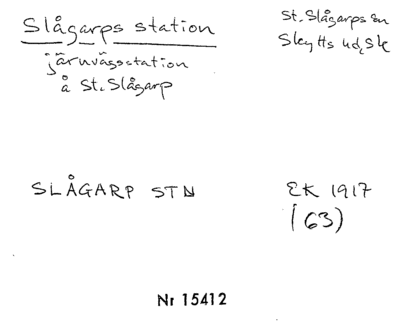 Slågarps station
järnvägsstation
å St. Slågarp
St. Slågarps sn
Skytts hd, Sk
SLÅGARP STN
EK 1917
(63)
Nr 15412